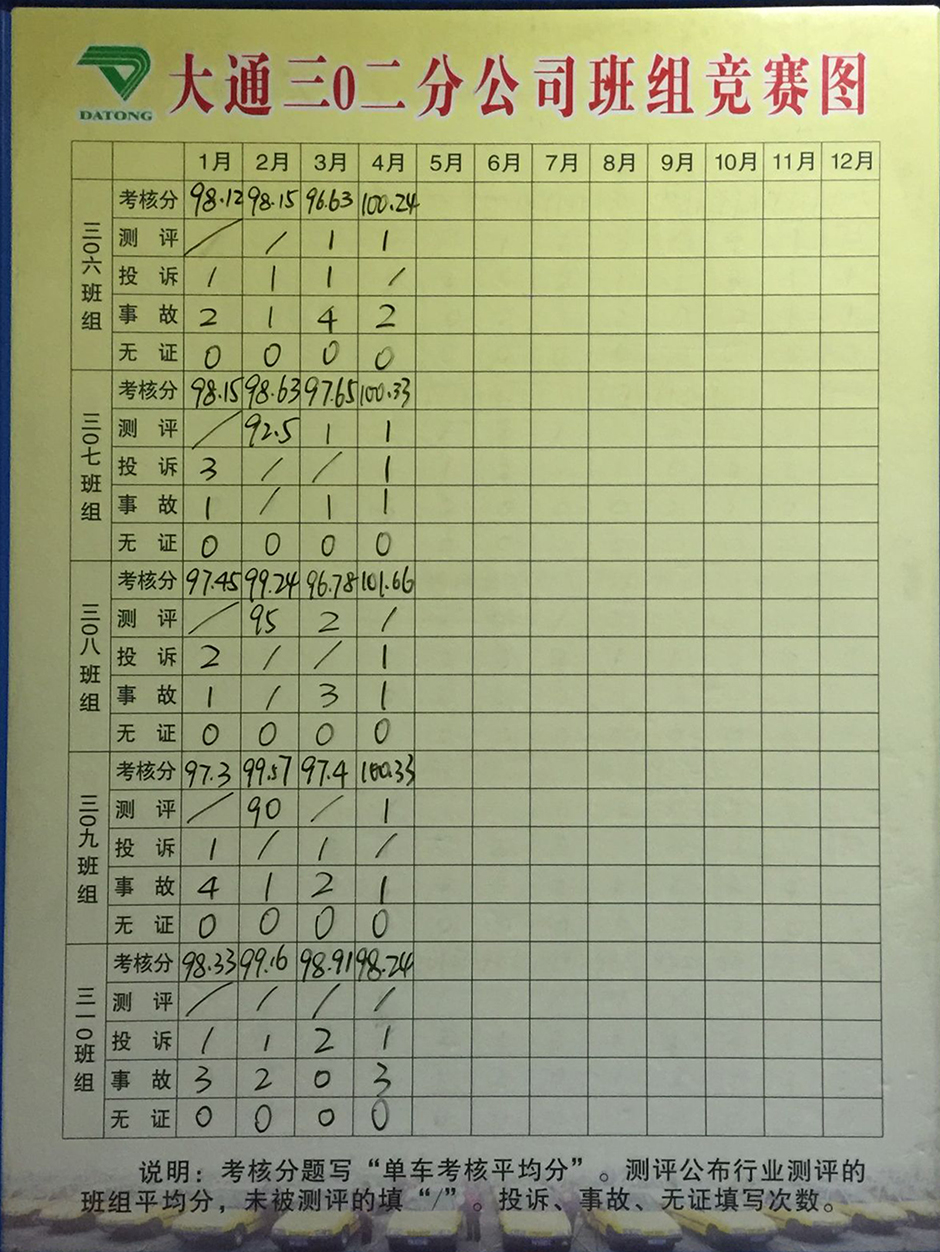 DATONG
大通三0二分公司班组竞赛图
1月 2月 3月 4月 5月 6月 7月 8月 9月 10月 11月 12月
三0六班组
考核分 98.12 98.15 96.63 100.24
测评 / / 1 1
投诉 1 1 1 /
事故 2 1 4 2
无证 0 0 0 0
三0七班组
考核分 98.15 98.63 97.65 100.33
测评 / 92.5 1 1
投诉 3 / / 1
事故 1 / 1 1
无证 0 0 0 0
三0八班组
考核分 97.45 99.24 96.78 101.66
测评 / 95 2 /
投诉 2 / / 1
事故 1 / 3 1
无证 0 0 0 0
三0九班组
考核分 97.3 99.57 97.4 100.33
测评 / 90 / 1
投诉 1 / 1 /
事故 4 1 2 1
无证 0 0 0 0
三一0班组
考核分 98.33 99.16 98.91 98.24
测评 / / / /
投诉 / 1 2 1
事故 3 2 0 3
无证 0 0 0 0
说明：考核分题写“单车考核平均分”。测评公布行业测评的
班组平均分，未被测评的填“/”。投诉、事故、无证填写次数。